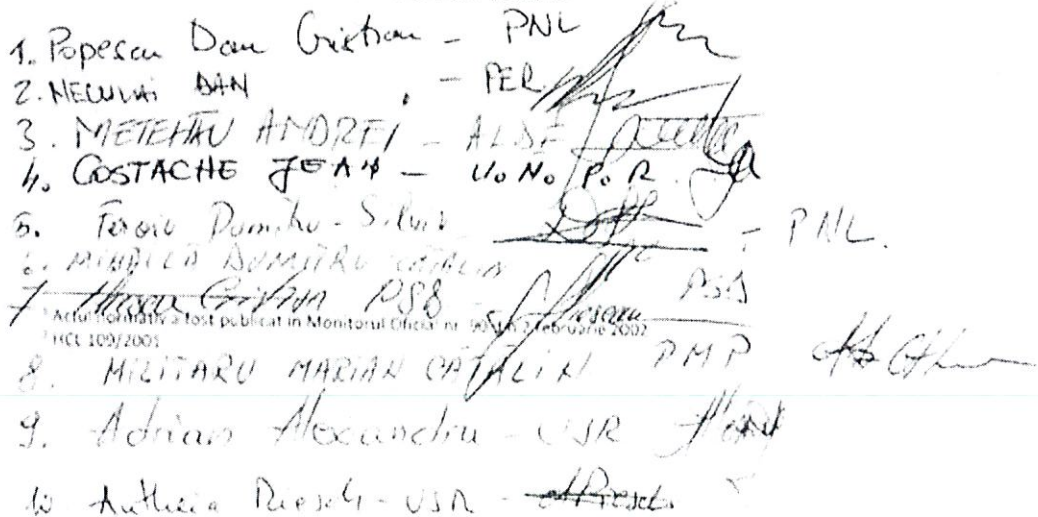 1. Popescu Dan Cristian - PNL
2. NECULAI DAN - PER
3. ANDREI - ALDE
4. COSTACHE JEAN - U.N.P.R.
5. Dumitru - Silviu - PNL.
6. MIHĂILĂ DUMITRU CĂTĂLIN PSD
7 PSD
Actul normativ a fost publicat in Monitorul Oficial nr. 90 2 februarie 2002
HCL 109/2001
8. MILITARU MARIAN CATALIN PMP
9. Adrian Alexandru - USR
10 - USR -